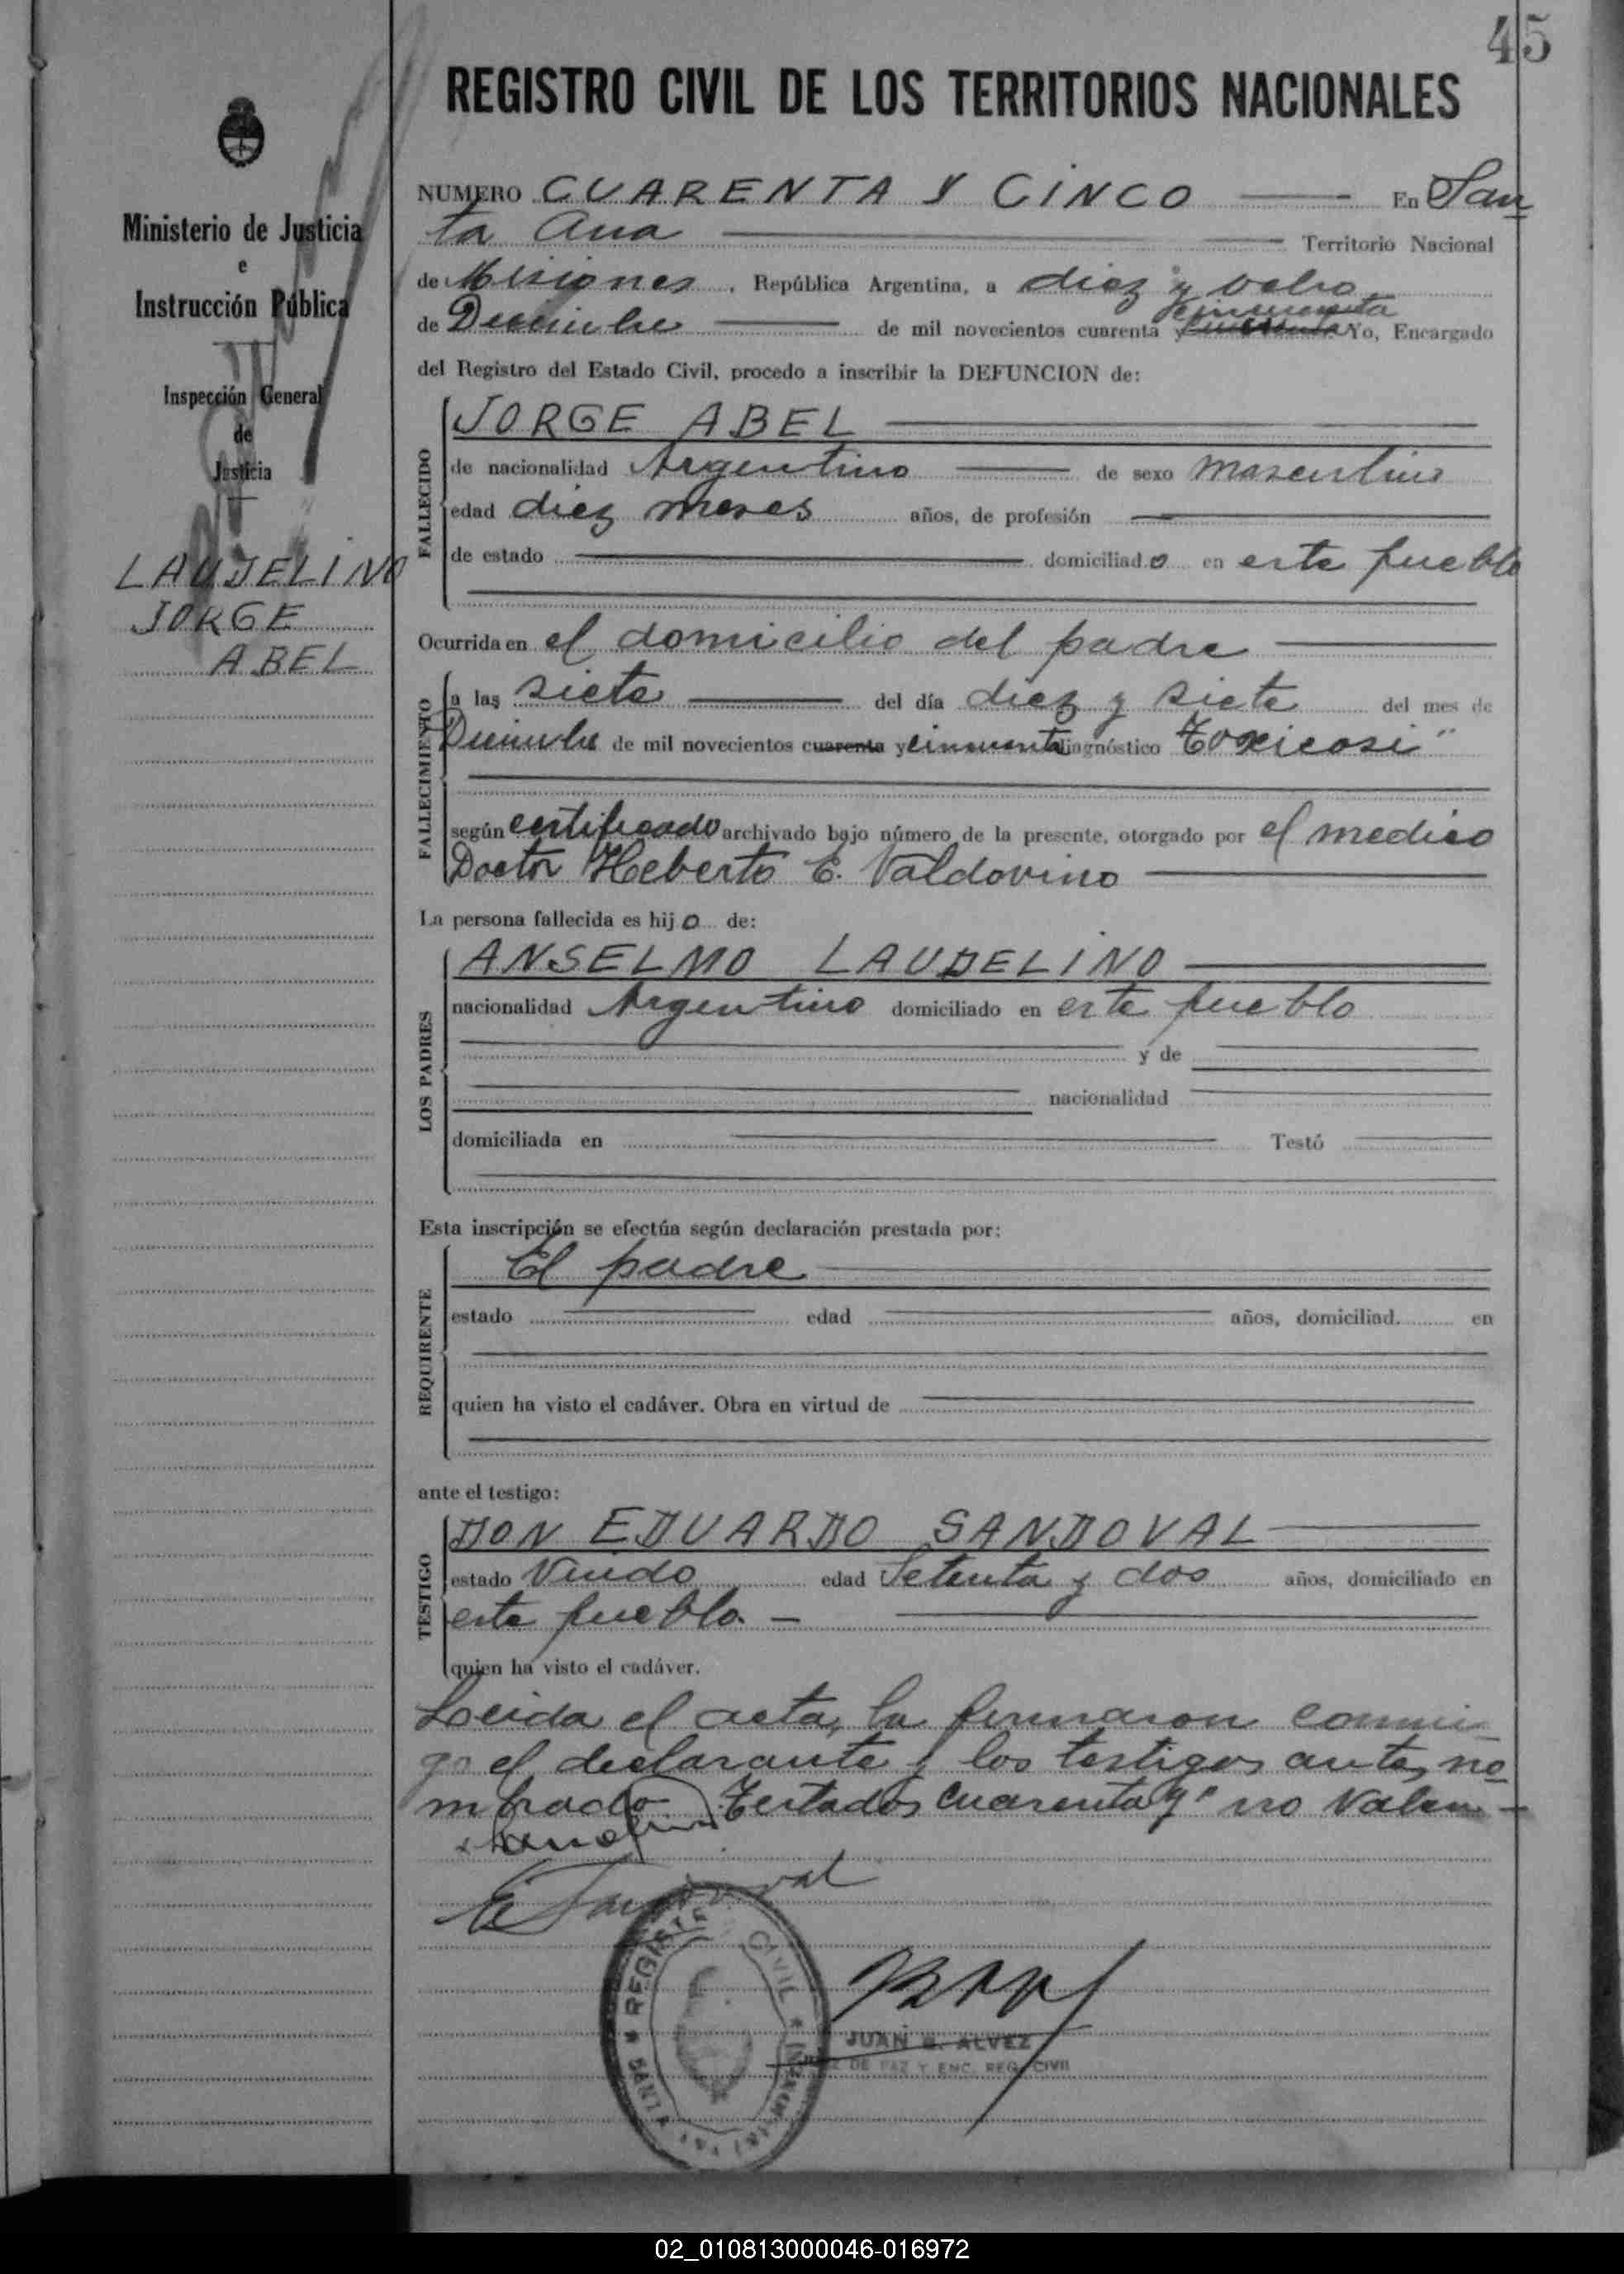 45
REGISTRO CIVIL DE LOS TERRITORIOS NACIONALES
Ministerio de Justicia
e
Instrucción Pública
Inspección General
de
Justicia
LAUDELINO
JORGE
ABEL
NUMERO CUARENTA Y CINCO En San
ta Ana Territorio Nacional
de Misiones, República Argentina, a diez y ocho
de Diciembre de mil novecientos cuarenta y cincuenta Yo, Encargado
del Registro del Estado Civil, procedo a inscribir la DEFUNCION de:
FALLECIDO
JORGE ABEL
de nacionalidad Argentino de sexo masculino
edad diez meses años, de profesión
de estado domiciliado en este pueblo
Ocurrida en el domicilio del padre
FALLECIMIENTO
a las siete del día diez y siete del mes de
Diciembre de mil novecientos cuarenta y cincuenta diagnóstico Toxicosi"
según certificado archivado bajo número de la presente, otorgado por el medico
Doctor Heberto E. Valdovino
La persona fallecida es hijo de:
LOS PADRES
ANSELMO LAUDELINO
nacionalidad Argentino domiciliado en este pueblo
y de
nacionalidad
domiciliada en Testó
Esta inscripción se efectúa según declaración prestada por:
REQUIRENTE
El padre
estado edad años, domiciliad en
quien ha visto el cadáver. Obra en virtud de
ante el testigo:
TESTIGO
DON EDUARDO SANDOVAL
estado Viudo edad Setenta y dos años, domiciliado en
este pueblo. —
quien ha visto el cadáver.
Leida el acta, la firmaron conmi
go el declarante y los testigos antes no
mbrado. Testados cuarenta y" no valen —
E Sandoval
REGISTRO CIVIL
SANTA ANA
JUAN B. ALVEZ
JUEZ DE PAZ Y ENC. REG. CIVIL
02_010813000046-016972